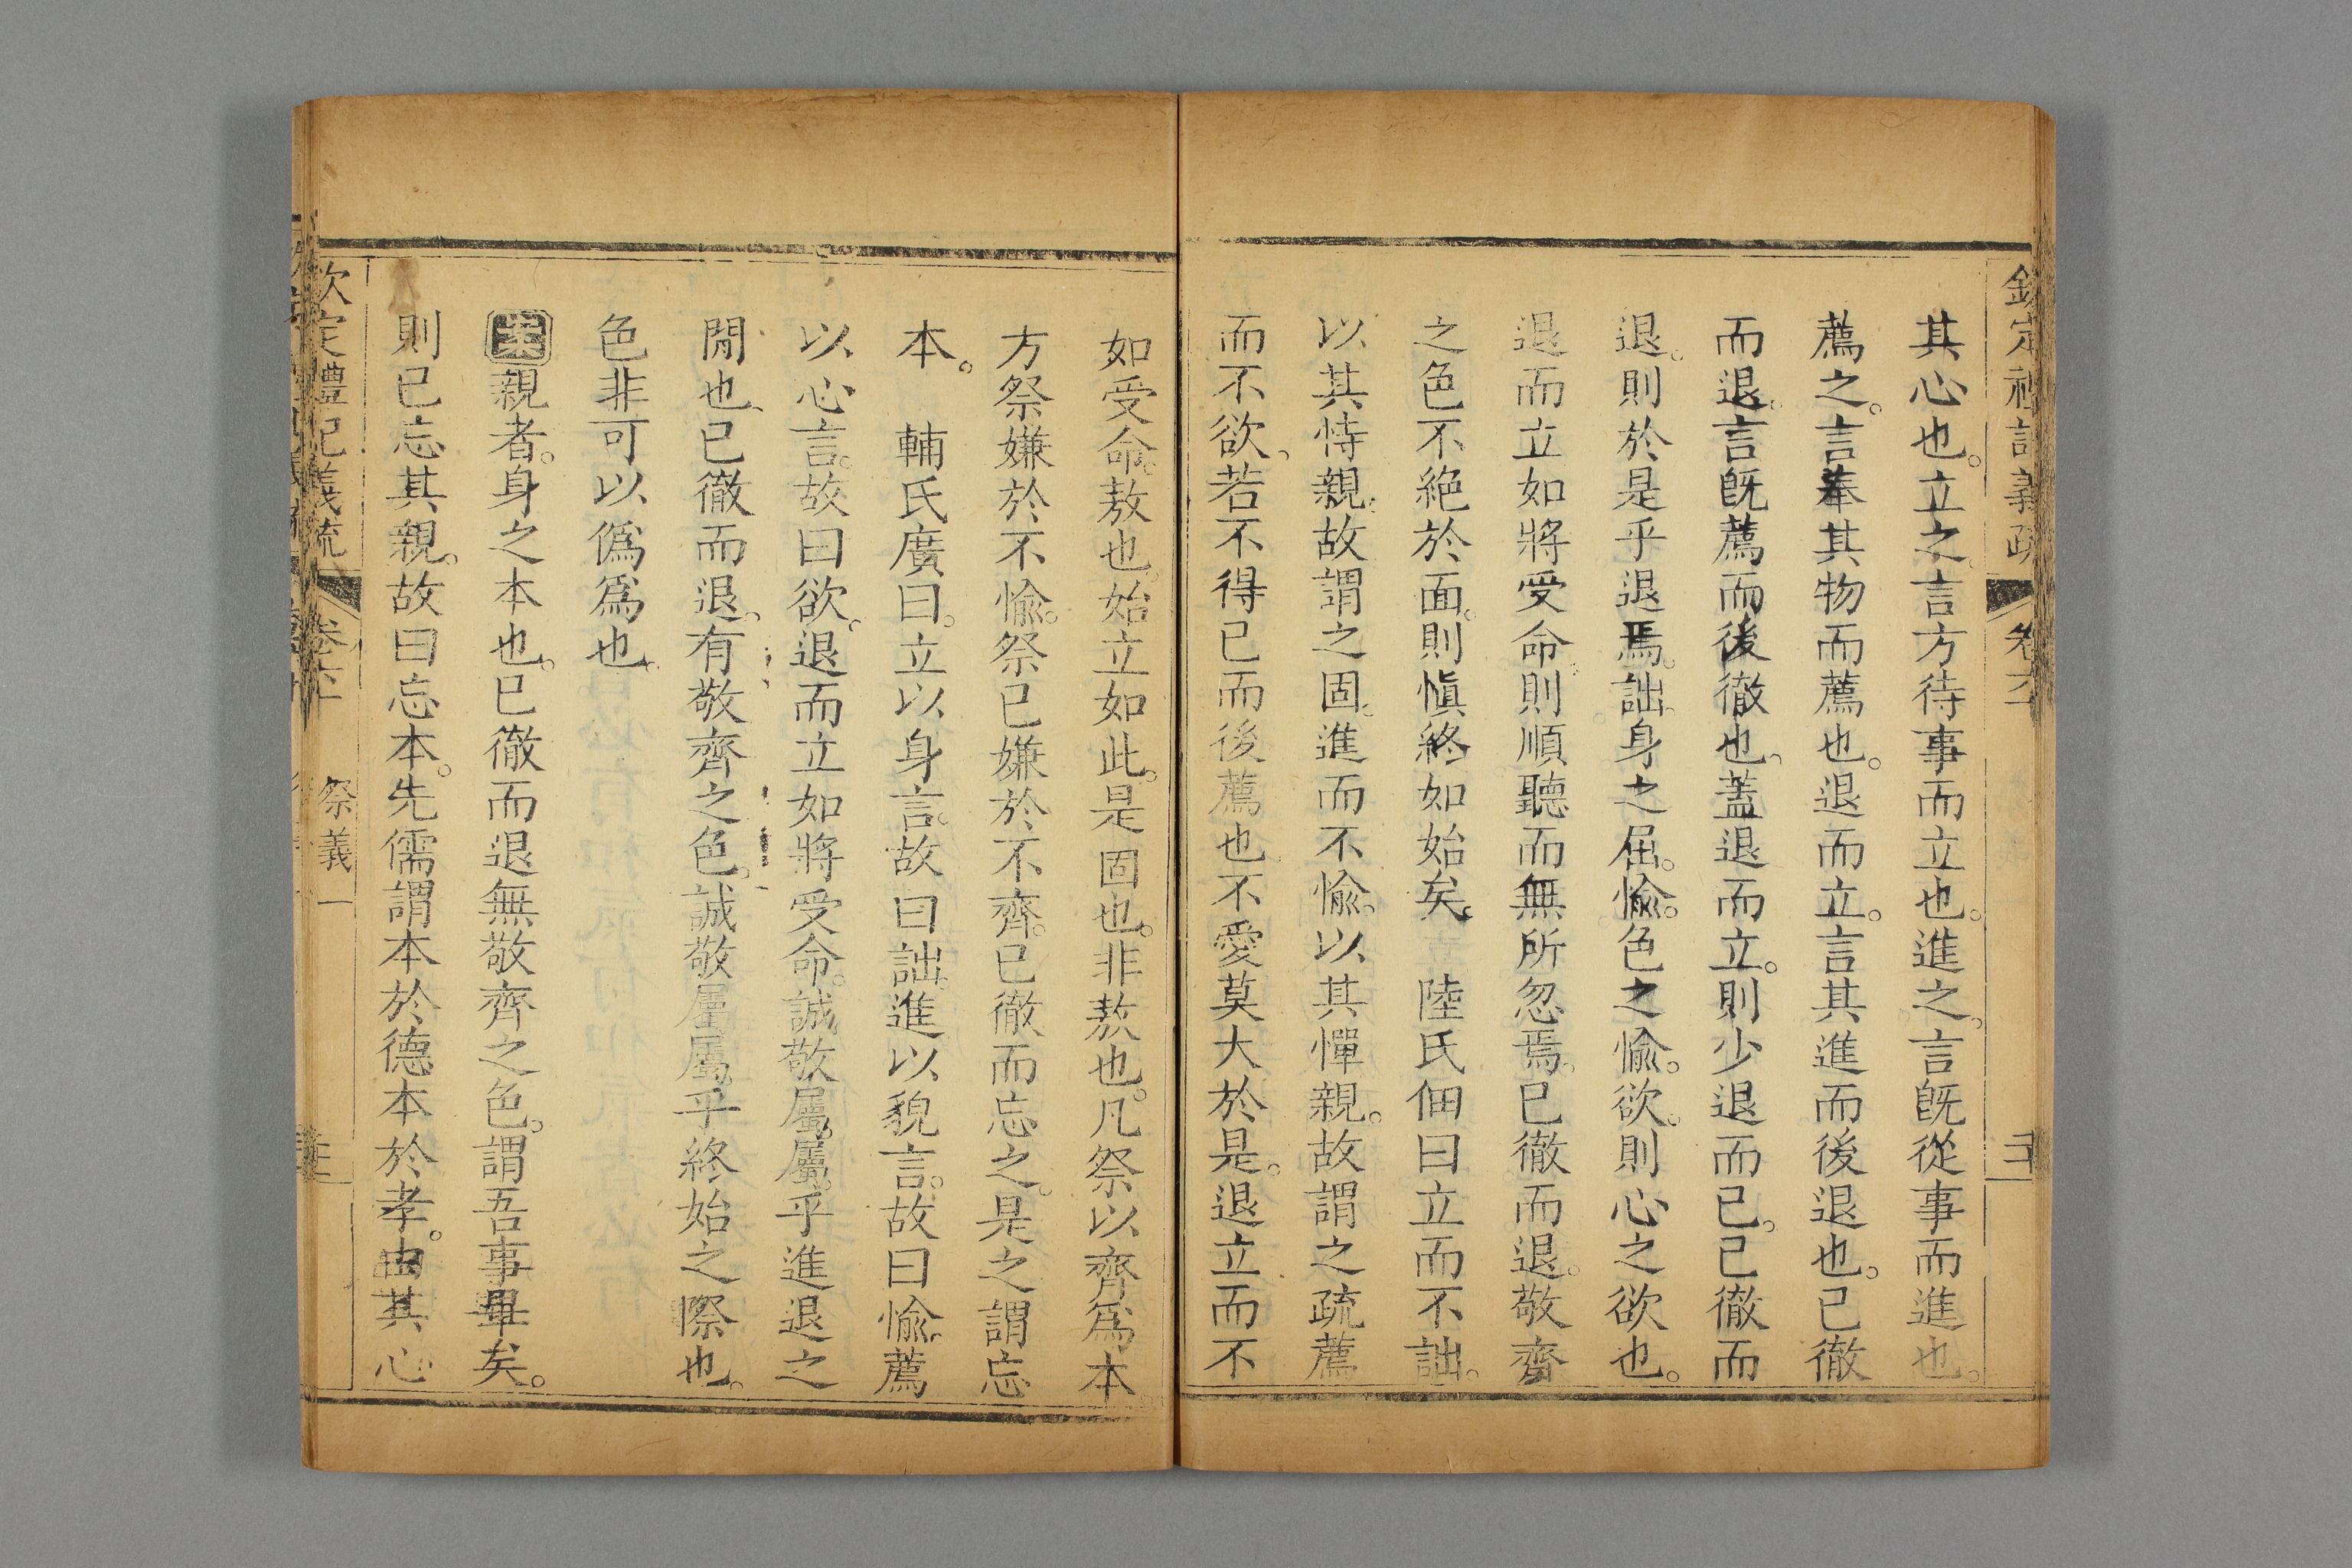 其心也。立之。言方待事而立也。進之。言既從事而進也。
薦之。言奉其物而薦也。退而立。言其進而後退也。已徹
而退。言既薦而後徹也。蓋退而立。則少退而已。已徹而
退。則於是乎退焉。詘。身之屈。愉。色之愉。欲。則心之欲也。
退而立如將受命。則順聽而無所忽焉。已徹而退。敬齊
之色不絕於面。則愼終如始矣。 陸氏佃曰立而不詘。
以其恃親。故謂之固。進而不愉。以其憚親。故謂之疏薦
而不欲。若不得已而後薦也。不愛莫大於是。退立而不
如受命。敖也。始立如此。是固也。非敖也。凡祭以齊爲本
方祭嫌於不愉。祭已嫌於不齊。已徹而忘之。是之謂忘
本。 輔氏廣曰。立以身言。故曰詘。進以貌言。故曰愉。薦
以心言。故曰欲。退而立如將受命。誠敬屬屬乎進退之
閒也。已徹而退。有敬齊之色。誠敬屬屬乎終始之際也。
色非可以僞爲也。
案親者。身之本也。已徹而退無敬齊之色。謂吾事畢矣。
則已忘其親。故曰忘本。先儒謂本於德本於孝。由其心
欽定禮記義疏 卷六十一 祭義一